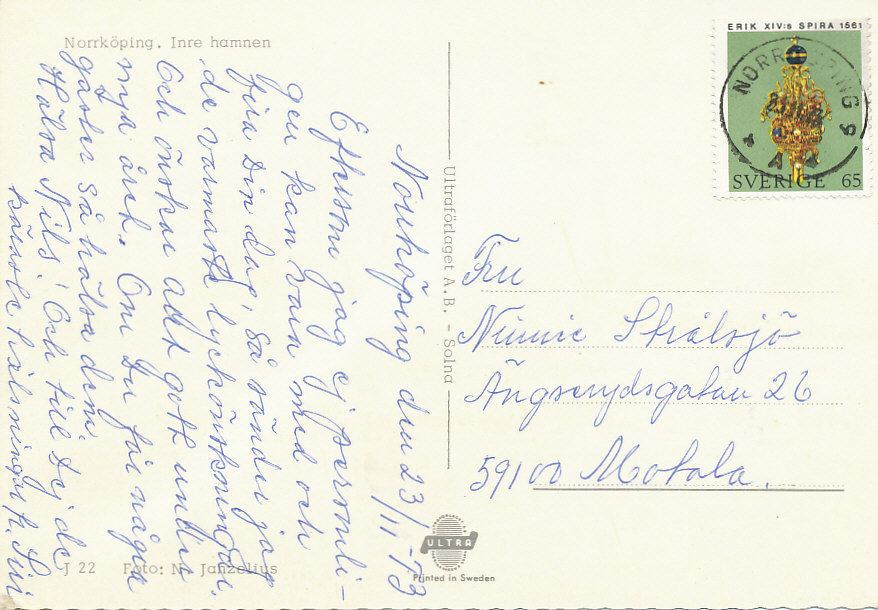 Norrköping. Inre hamnen
Norrköping den 23/11-73
Eftersom jag ej personli-
gen kan vara med och
fira Din dag, så sänder jag
de varmaste lyckönskningar.
Och önskar allt gott under
nya året. Om Du får några
gäster så hälsa dem.
Hälsa Nils! Och till Dej de
hälsningar fr. Siri
J 22 Foto: N. Janzelius
Ultraförlaget A.B. - Solna
ULTRA
Printed in Sweden
ERIK XIV:s SPIRA 1561
SVERIGE 65
NORRKÖPING 9
Fru
Nimmie Strålsjö
Ängserydsgatan 26
59100 Motala.